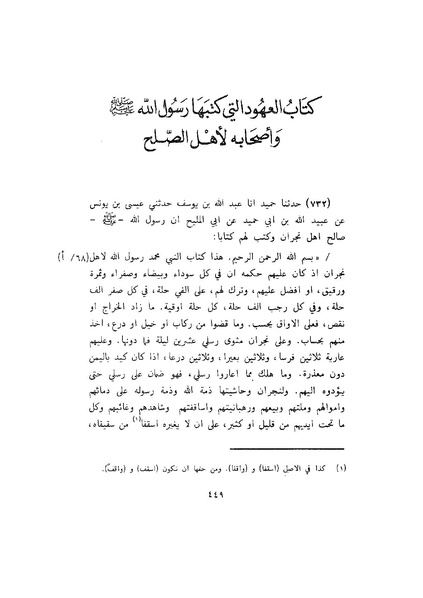 كتاب العهود التي كتبها رسول الله ﷺ
وأصحابه لأهل الصلح
(٧٣٢) حدثنا حميد انا عبد الله بن يوسف حدثني عيسى بن يونس
عن عبيد الله بن ابي حميد عن ابي المليح ان رسول الله -ﷺ-
صالح اهل نجران وكتب لهم كتابا:
/ « بسم الله الرحمن الرحيم. هذا كتاب النبي محمد رسول الله لاهل (٦٨/ أ)
نجران اذ كان عليهم حكمه ان في كل سوداء وبيضاء وصفراء وثمرة
ورقيق، او افضل عليهم، وترك لهم، على الفي حلة، في كل صفر الف
حلة، وفي كل رجب الف حلة، كل حلة اوقية. ما زاد الخراج او
نقص، فعلى الاواق يحسب. وما قضوا من ركاب او خيل او درع، اخذ
منهم بحساب. وعلى نجران مثوى رسلي عشرين ليلة فما دونها. وعليهم
عارية ثلاثين فرسا، وثلاثين بعيرا، وثلاثين درعا، اذا كان كيد باليمن
دون معذرة. وما هلك مما اعاروا رسلي، فهو ضمان على رسلي حتى
يؤدوه اليهم. ولنجران وحاشيتها ذمة الله وذمة رسوله على دمائهم
واموالهم وملتهم وبيعهم ورهبانيتهم واساقفتهم وشاهدهم وغائبهم وكل
ما تحت ايديهم من قليل او كثير، على ان لا يغيره اسقفا(١) من سقيفاه،
(١) كذا في الاصل (اسقفا) و (واقفا). ومن حقها ان تكون (اسقف) و (واقف).
٤٤٩